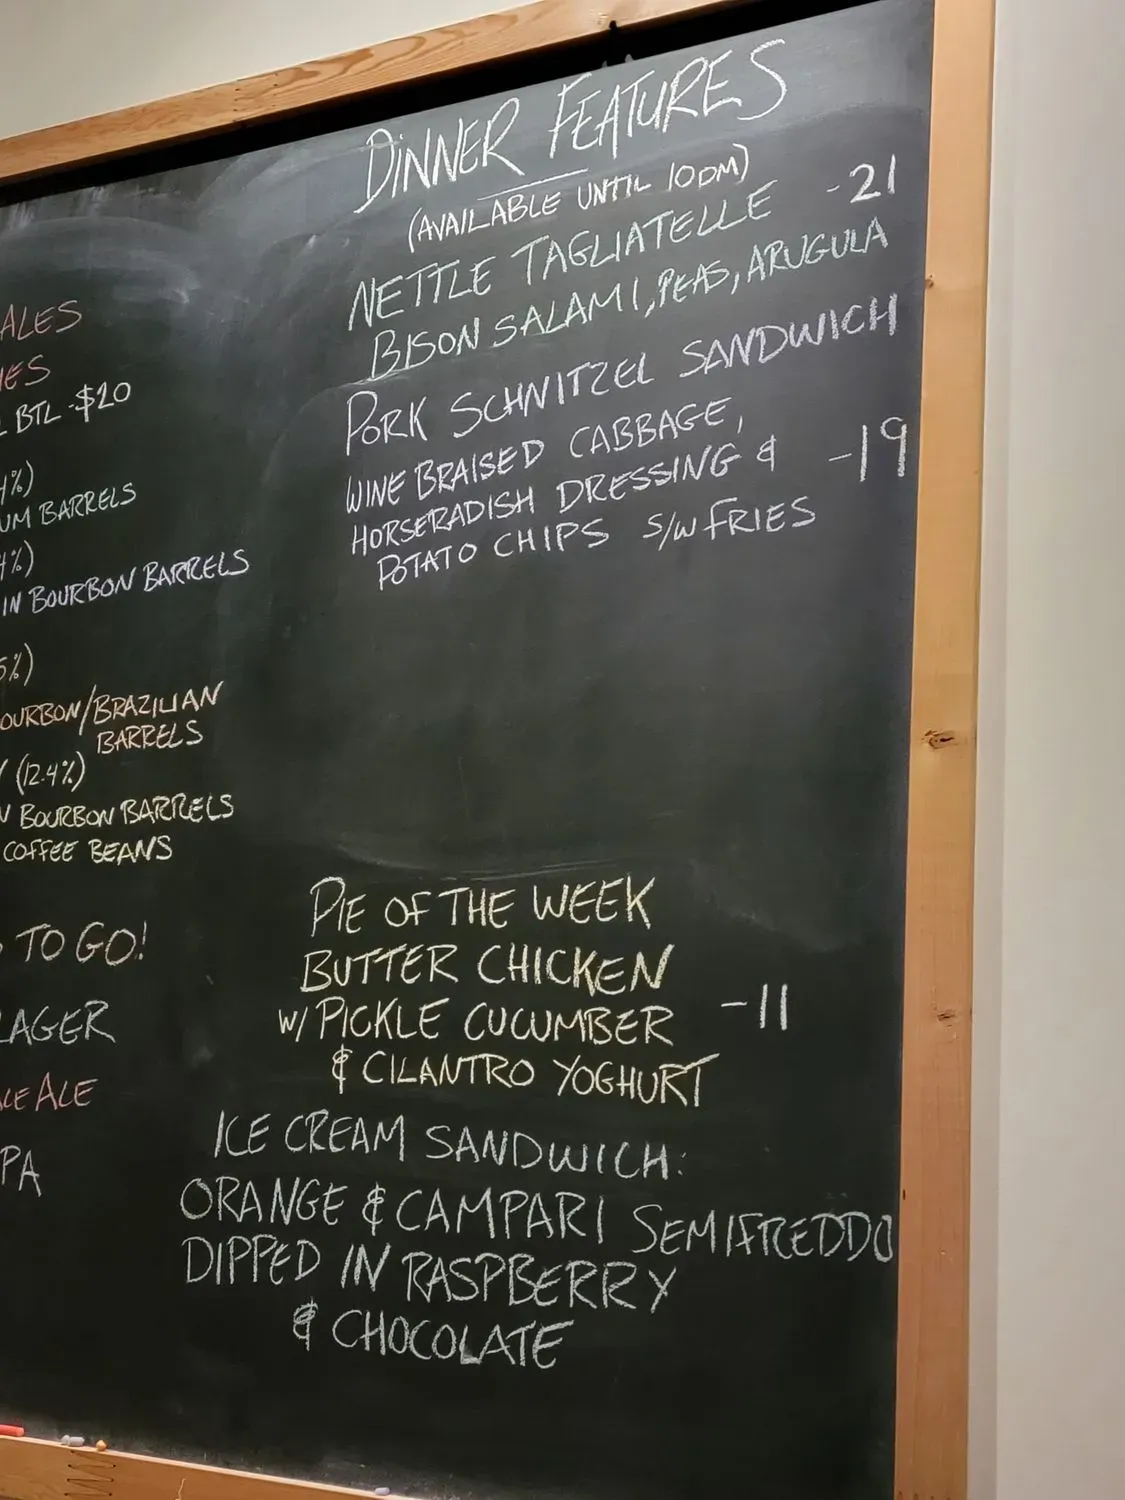 DINNER FEATURES
(AVAILABLE UNTIL 10PM)
NETTLE TAGLIATELLE -21
BISON SALAMI, PEAS, ARUGULA
PORK SCHNITZEL SANDWICH
WINE BRAISED CABBAGE,
HORSERADISH DRESSING & -19
POTATO CHIPS S/W FRIES
PIE OF THE WEEK
BUTTER CHICKEN
W/ PICKLE CUCUMBER -11
& CILANTRO YOGHURT
ICE CREAM SANDWICH:
ORANGE & CAMPARI SEMIFREDDO
DIPPED IN RASPBERRY
& CHOCOLATE
ALES
BTL -$20
4%)
UM BARRELS
4%)
IN BOURBON BARRELS
5%)
OURBON/BRAZILIAN
BARRELS
(12.4%)
BOURBON BARRELS
COFFEE BEANS
TO GO!
LAGER
ALE
PA